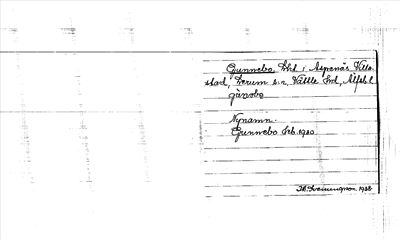 Gunnebo, Lht i Aspenäs Villa-
stad, Lerum sn, Vättle hd, Älfsb. l.
gŭnebo
Nynamn.
Gunnebo feb. 1920
1938